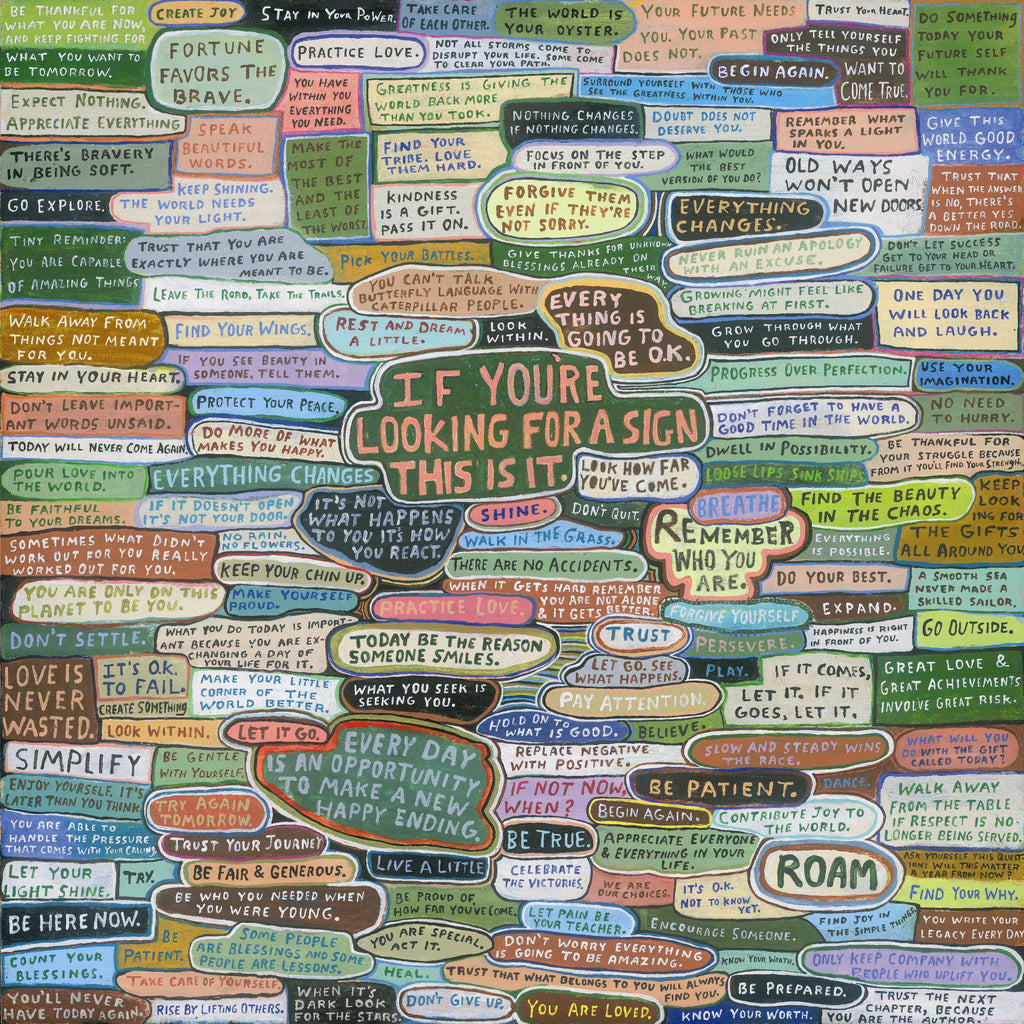 BE THANKFUL FOR
WHAT YOU ARE NOW,
AND KEEP FIGHTING FOR
WHAT YOU WANT TO
BE TOMORROW.
CREATE JOY
STAY IN YOUR POWER.
TAKE CARE
OF EACH OTHER.
THE WORLD IS
YOUR OYSTER.
YOUR FUTURE NEEDS
YOU. YOUR PAST
DOES NOT.
TRUST YOUR HEART.
DO SOMETHING
TODAY YOUR
FUTURE SELF
WILL THANK
YOU FOR.
FORTUNE
FAVORS THE
BRAVE.
PRACTICE LOVE.
NOT ALL STORMS COME TO
DISRUPT YOUR LIFE. SOME COME
TO CLEAR YOUR PATH.
ONLY TELL YOURSELF
THE THINGS YOU
WANT TO
COME TRUE.
BEGIN AGAIN.
EXPECT NOTHING.
APPRECIATE EVERYTHING
YOU HAVE
WITHIN YOU
EVERYTHING
YOU NEED.
GREATNESS IS GIVING
THE WORLD BACK MORE
THAN YOU TOOK.
SURROUND YOURSELF WITH THOSE WHO
SEE THE GREATNESS WITHIN YOU.
SPEAK
BEAUTIFUL
WORDS.
NOTHING CHANGES
IF NOTHING CHANGES.
DOUBT DOES NOT
DESERVE YOU.
REMEMBER WHAT
SPARKS A LIGHT
IN YOU.
GIVE THIS
WORLD GOOD
ENERGY.
THERE'S BRAVERY
IN BEING SOFT.
MAKE THE
MOST OF
THE BEST
AND THE
LEAST OF
THE WORST
FIND YOUR
TRIBE. LOVE
THEM HARD.
FOCUS ON THE STEP
IN FRONT OF YOU.
WHAT WOULD
THE BEST
VERSION OF YOU DO?
OLD WAYS
WON'T OPEN
NEW DOORS.
TRUST THAT
WHEN THE ANSWER
IS NO, THERE'S
A BETTER YES
DOWN THE ROAD.
GO EXPLORE.
KEEP SHINING.
THE WORLD NEEDS
YOUR LIGHT.
KINDNESS
IS A GIFT.
PASS IT ON.
FORGIVE THEM
EVEN IF THEY'RE
NOT SORRY.
EVERYTHING
CHANGES.
TINY REMINDER:
YOU ARE CAPABLE
OF AMAZING THINGS.
TRUST THAT YOU ARE
EXACTLY WHERE YOU ARE
MEANT TO BE.
PICK YOUR BATTLES.
GIVE THANKS FOR UNKNOWN
BLESSINGS ALREADY ON
THEIR
WAY.
NEVER RUIN AN APOLOGY
WITH AN EXCUSE.
DON'T LET SUCCESS
GET TO YOUR HEAD OR
FAILURE GET TO YOUR HEART.
LEAVE THE ROAD, TAKE THE TRAILS.
YOU CAN'T TALK
BUTTERFLY LANGUAGE WITH
CATERPILLAR PEOPLE.
EVERY
THING IS
GOING TO
BE O.K.
GROWING MIGHT FEEL LIKE
BREAKING AT FIRST.
ONE DAY YOU
WILL LOOK BACK
AND LAUGH.
WALK AWAY FROM
THINGS NOT MEANT
FOR YOU.
FIND YOUR WINGS.
REST AND DREAM
A LITTLE.
LOOK
WITHIN.
GROW THROUGH WHAT
YOU GO THROUGH.
IF YOU SEE BEAUTY IN
SOMEONE, TELL THEM.
STAY IN YOUR HEART.
IF YOU'RE
LOOKING FOR A SIGN
THIS IS IT.
PROGRESS OVER PERFECTION.
USE YOUR
IMAGINATION.
DON'T LEAVE IMPORT-
ANT WORDS UNSAID.
PROTECT YOUR PEACE.
DON'T FORGET TO HAVE A
GOOD TIME IN THE WORLD.
NO NEED
TO HURRY.
TODAY WILL NEVER COME AGAIN.
DO MORE OF WHAT
MAKES YOU HAPPY.
DWELL IN POSSIBILITY.
BE THANKFUL FOR
YOUR STRUGGLE BECAUSE
FROM IT YOU'LL FIND YOUR STRENGTH.
POUR LOVE INTO
THE WORLD.
EVERYTHING CHANGES
LOOK HOW FAR
YOU'VE COME.
LOOSE LIPS SINK SHIPS.
KEEP
LOOK
ING FOR
THE GIFTS
ALL AROUND YOU
BE FAITHFUL
TO YOUR DREAMS.
IF IT DOESN'T OPEN
IT'S NOT YOUR DOOR.
IT'S NOT
WHAT HAPPENS
TO YOU IT'S HOW
YOU REACT.
SHINE.
DON'T QUIT.
BREATHE
FIND THE BEAUTY
IN THE CHAOS.
REMEMBER
WHO YOU
ARE.
SOMETIMES WHAT DIDN'T
WORK OUT FOR YOU REALLY
WORKED OUT FOR YOU.
NO RAIN,
NO FLOWERS.
WALK IN THE GRASS.
EVERYTHING
IS POSSIBLE.
KEEP YOUR CHIN UP.
THERE ARE NO ACCIDENTS.
DO YOUR BEST.
A SMOOTH SEA
NEVER MADE A
SKILLED SAILOR.
YOU ARE ONLY ON THIS
PLANET TO BE YOU.
MAKE YOURSELF
PROUD.
PRACTICE LOVE.
WHEN IT GETS HARD REMEMBER
YOU ARE NOT ALONE
& IT GETS BETTER.
FORGIVE YOURSELF
EXPAND.
DON'T SETTLE.
WHAT YOU DO TODAY IS IMPORT-
ANT BECAUSE YOU ARE EX-
CHANGING A DAY OF
YOUR LIFE FOR IT.
TODAY BE THE REASON
SOMEONE SMILES.
TRUST
PERSEVERE.
HAPPINESS IS RIGHT
IN FRONT OF YOU.
GO OUTSIDE.
LOVE IS
NEVER
WASTED.
IT'S O.K.
TO FAIL.
CREATE SOMETHING
MAKE YOUR LITTLE
CORNER OF THE
WORLD BETTER.
WHAT YOU SEEK IS
SEEKING YOU.
LET GO. SEE
WHAT HAPPENS.
PLAY.
IF IT COMES,
LET IT. IF IT
GOES, LET IT.
GREAT LOVE &
GREAT ACHIEVEMENTS
INVOLVE GREAT RISK.
PAY ATTENTION.
LOOK WITHIN.
LET IT GO.
HOLD ON TO
WHAT IS GOOD.
BELIEVE.
SIMPLIFY
BE GENTLE
WITH YOURSELF.
EVERY DAY
IS AN OPPORTUNITY
TO MAKE A NEW
HAPPY ENDING.
REPLACE NEGATIVE
WITH POSITIVE.
SLOW AND STEADY WINS
THE RACE.
WHAT WILL YOU
DO WITH THE GIFT
CALLED TODAY?
ENJOY YOURSELF. IT'S
LATER THAN YOU THINK
TRY AGAIN
TOMORROW.
IF NOT NOW,
WHEN?
BE PATIENT.
DANCE.
WALK AWAY
FROM THE TABLE
IF RESPECT IS NO
LONGER BEING SERVED.
BEGIN AGAIN.
CONTRIBUTE JOY TO
THE WORLD.
YOU ARE ABLE TO
HANDLE THE PRESSURE
THAT COMES WITH YOUR CALLING
TRUST YOUR JOURNEY
BE TRUE.
APPRECIATE EVERYONE
& EVERYTHING IN YOUR
LIFE.
ROAM
ASK YOURSELF THIS QUEST
ION: WILL THIS MATTER
A YEAR FROM NOW?
LET YOUR
LIGHT SHINE.
TRY.
BE FAIR & GENEROUS.
LIVE A LITTLE
CELEBRATE
THE VICTORIES.
WE ARE
OUR CHOICES.
IT'S O.K.
NOT TO KNOW
YET.
FIND YOUR WHY.
BE WHO YOU NEEDED WHEN
YOU WERE YOUNG.
BE PROUD OF
HOW FAR YOU'VE COME.
BE HERE NOW.
LET PAIN BE
YOUR TEACHER.
ENCOURAGE SOMEONE.
FIND JOY IN
THE SIMPLE THINGS
YOU WRITE YOUR
LEGACY EVERY DAY
BE
PATIENT.
SOME PEOPLE
ARE BLESSINGS AND SOME
PEOPLE ARE LESSONS.
YOU ARE SPECIAL
ACT IT.
DON'T WORRY EVERYTHING
IS GOING TO BE AMAZING.
KNOW YOUR WORTH.
ONLY KEEP COMPANY WITH
PEOPLE WHO UPLIFT YOU.
COUNT YOUR
BLESSINGS.
TAKE CARE OF YOURSELF.
HEAL.
TRUST THAT WHAT BELONGS TO YOU WILL ALWAYS
FIND YOU.
BE PREPARED.
YOU'LL NEVER
HAVE TODAY AGAIN.
RISE BY LIFTING OTHERS.
WHEN IT'S
DARK LOOK
FOR THE STARS.
DON'T GIVE UP.
YOU ARE LOVED.
KNOW YOUR WORTH.
TRUST THE NEXT
CHAPTER, BECAUSE
YOU ARE THE AUTHOR.